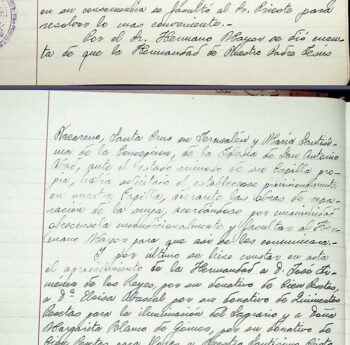 en su consecuencia se facultó al Sr. Prioste para
resolver lo mas conveniente.-
Por el Sr. Hermano Mayor se dió cuen-
ta de que la Hermandad de Nuestro Padre Jesús
Nazareno, Santa Cruz en Jerusalén y María Santísi-
ma de la Concepcion, de la Iglesia de San Antonio
Abad, ante el estado ruinoso de su Capilla pro-
pia, habia solicitado el establecerse provisionalmente
en nuestra Capilla, durante las obras de repa-
racion de la suya, acordandose por unanimidad
ofrecersela incondicionalmente y facultar al Her-
mano Mayor para que asi se les comunicara.
Y por último se hizo constar en acta
el agradecimiento de la Hermandad a D. Jose
de los Reyes, por su donativo de Cien Pesetas,
a Dª Eloisa por su donativo de Quinientas
Pesetas para la iluminacion del Sagrario y a Doña
Margarita Blanco de Gómez, por su donativo de
Pesetas para Nuestro Santísimo Cristo